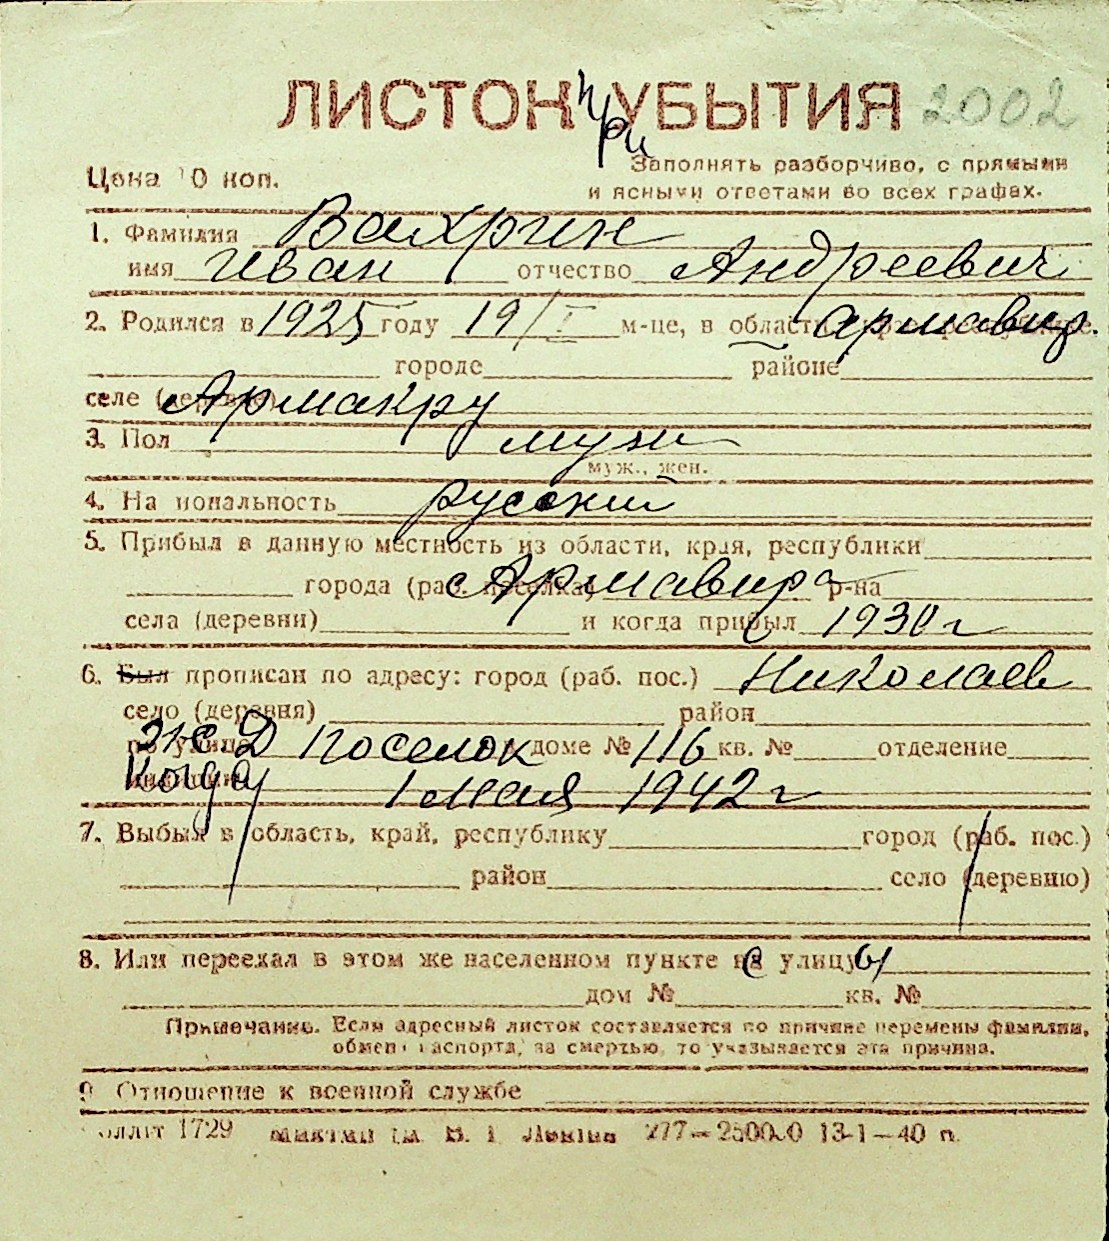 ЛИСТОК УБЫТИЯ 2002
при
Цена 10 коп.
Заполнять разборчиво, с прямыми
и ясными ответами во всех графах.
1. Фамилия Вахрин
имя Иван отчество Андреевич
2. Родился в 1925 году 19/I м-це, в области Армавир.
городе районе
селе (деревне) Армакру
3. Пол муж
муж., жен.
4. Национальность русский
5. Прибыл в данную местность из области, края, республики
города (раб. поселка) Армавира р-на
села (деревни) и когда прибыл 1930 г
6. Был прописан по адресу: город (раб. пос.) Николаев
село (деревня) район
по улице Ж.Д поселок доме № 116 кв. № отделение
Когда 1 мая 1942 г
7. Выбыл в область, край, республику город (раб. пос.)
район село (деревню)
8. Или переехал в этом же населенном пункте с улицы
дом № кв. №
Примечание. Если адресный листок составляется по причине перемены фамилии,
обмена паспорта, за смертью, то указывается эта причина.
9. Отношение к военной службе
1729 Ленина 277—250000 13-1—40 п.